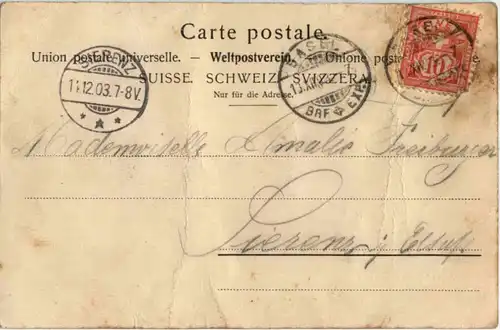 Carte postale.
Union postale universelle. — Weltpostverein. — Unione postale
SUISSE. SCHWEIZ. SVIZZERA.
Nur für die Adresse.
SIERENZ
11.12.03.7-8V.
BASEL
BRF. EXP.
10
Mademoiselle Amalie Freiburger
Sierenz i/ Elsass